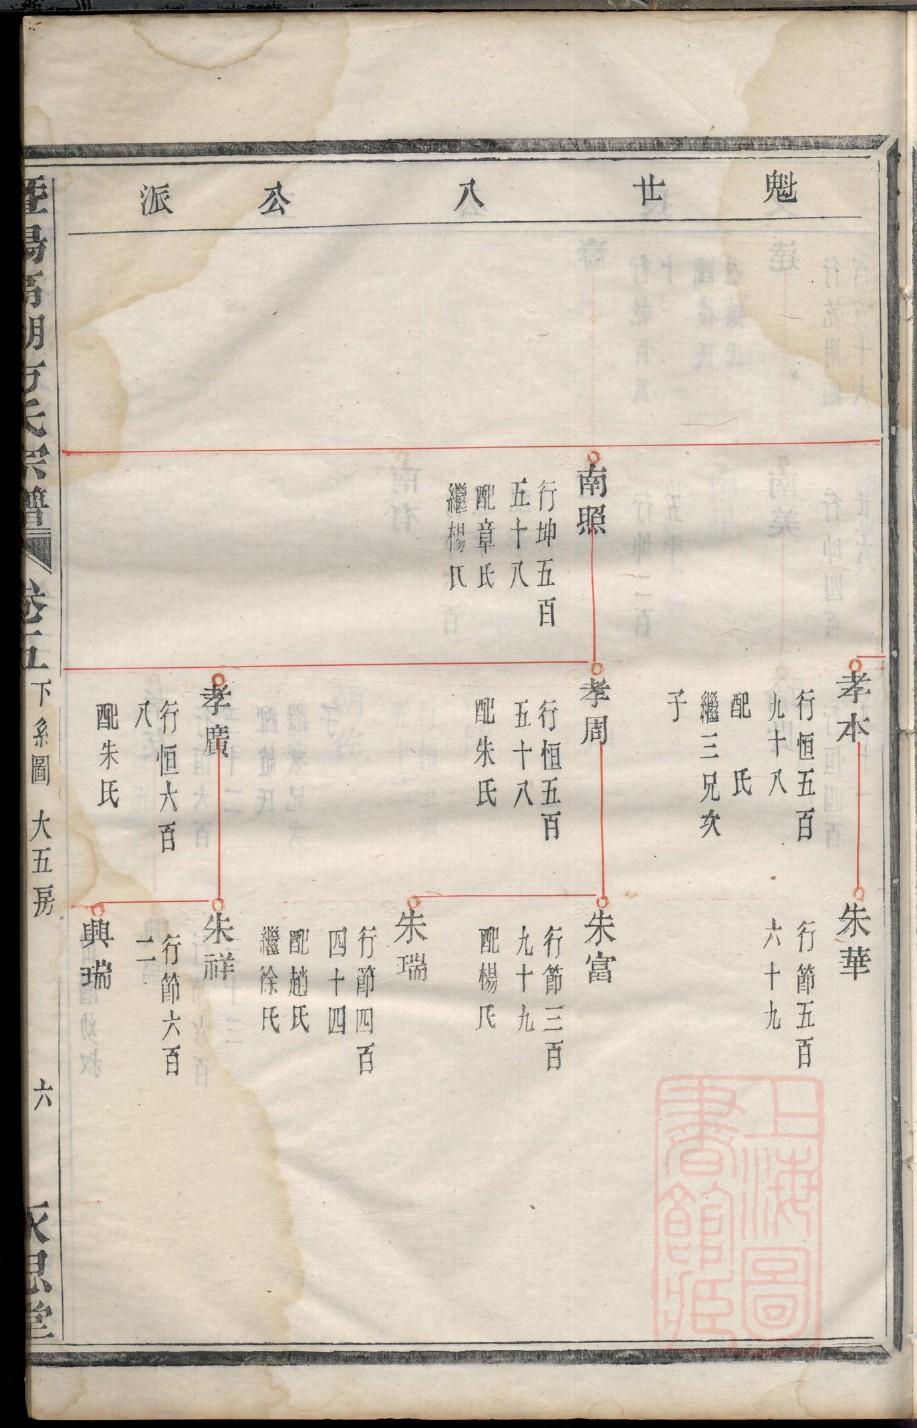 魁世八公派
南照
行坤五百
五十八
配章氏
繼楊氏
孝本
行恒五百
九十八
配 氏
繼三兄次
子
孝周
行恒五百
五十八
配朱氏
孝廣
行恒六百
八
配朱氏
朱華
行節五百
六十九
朱富
行節三百
九十九
配楊氏
朱瑞
行節四百
四十四
配趙氏
繼徐氏
朱祥
行節六百
二
興瑞
暨陽高湖方氏宗譜
卷五
下系圖 大五房
六
永思堂
上海圖
書館藏